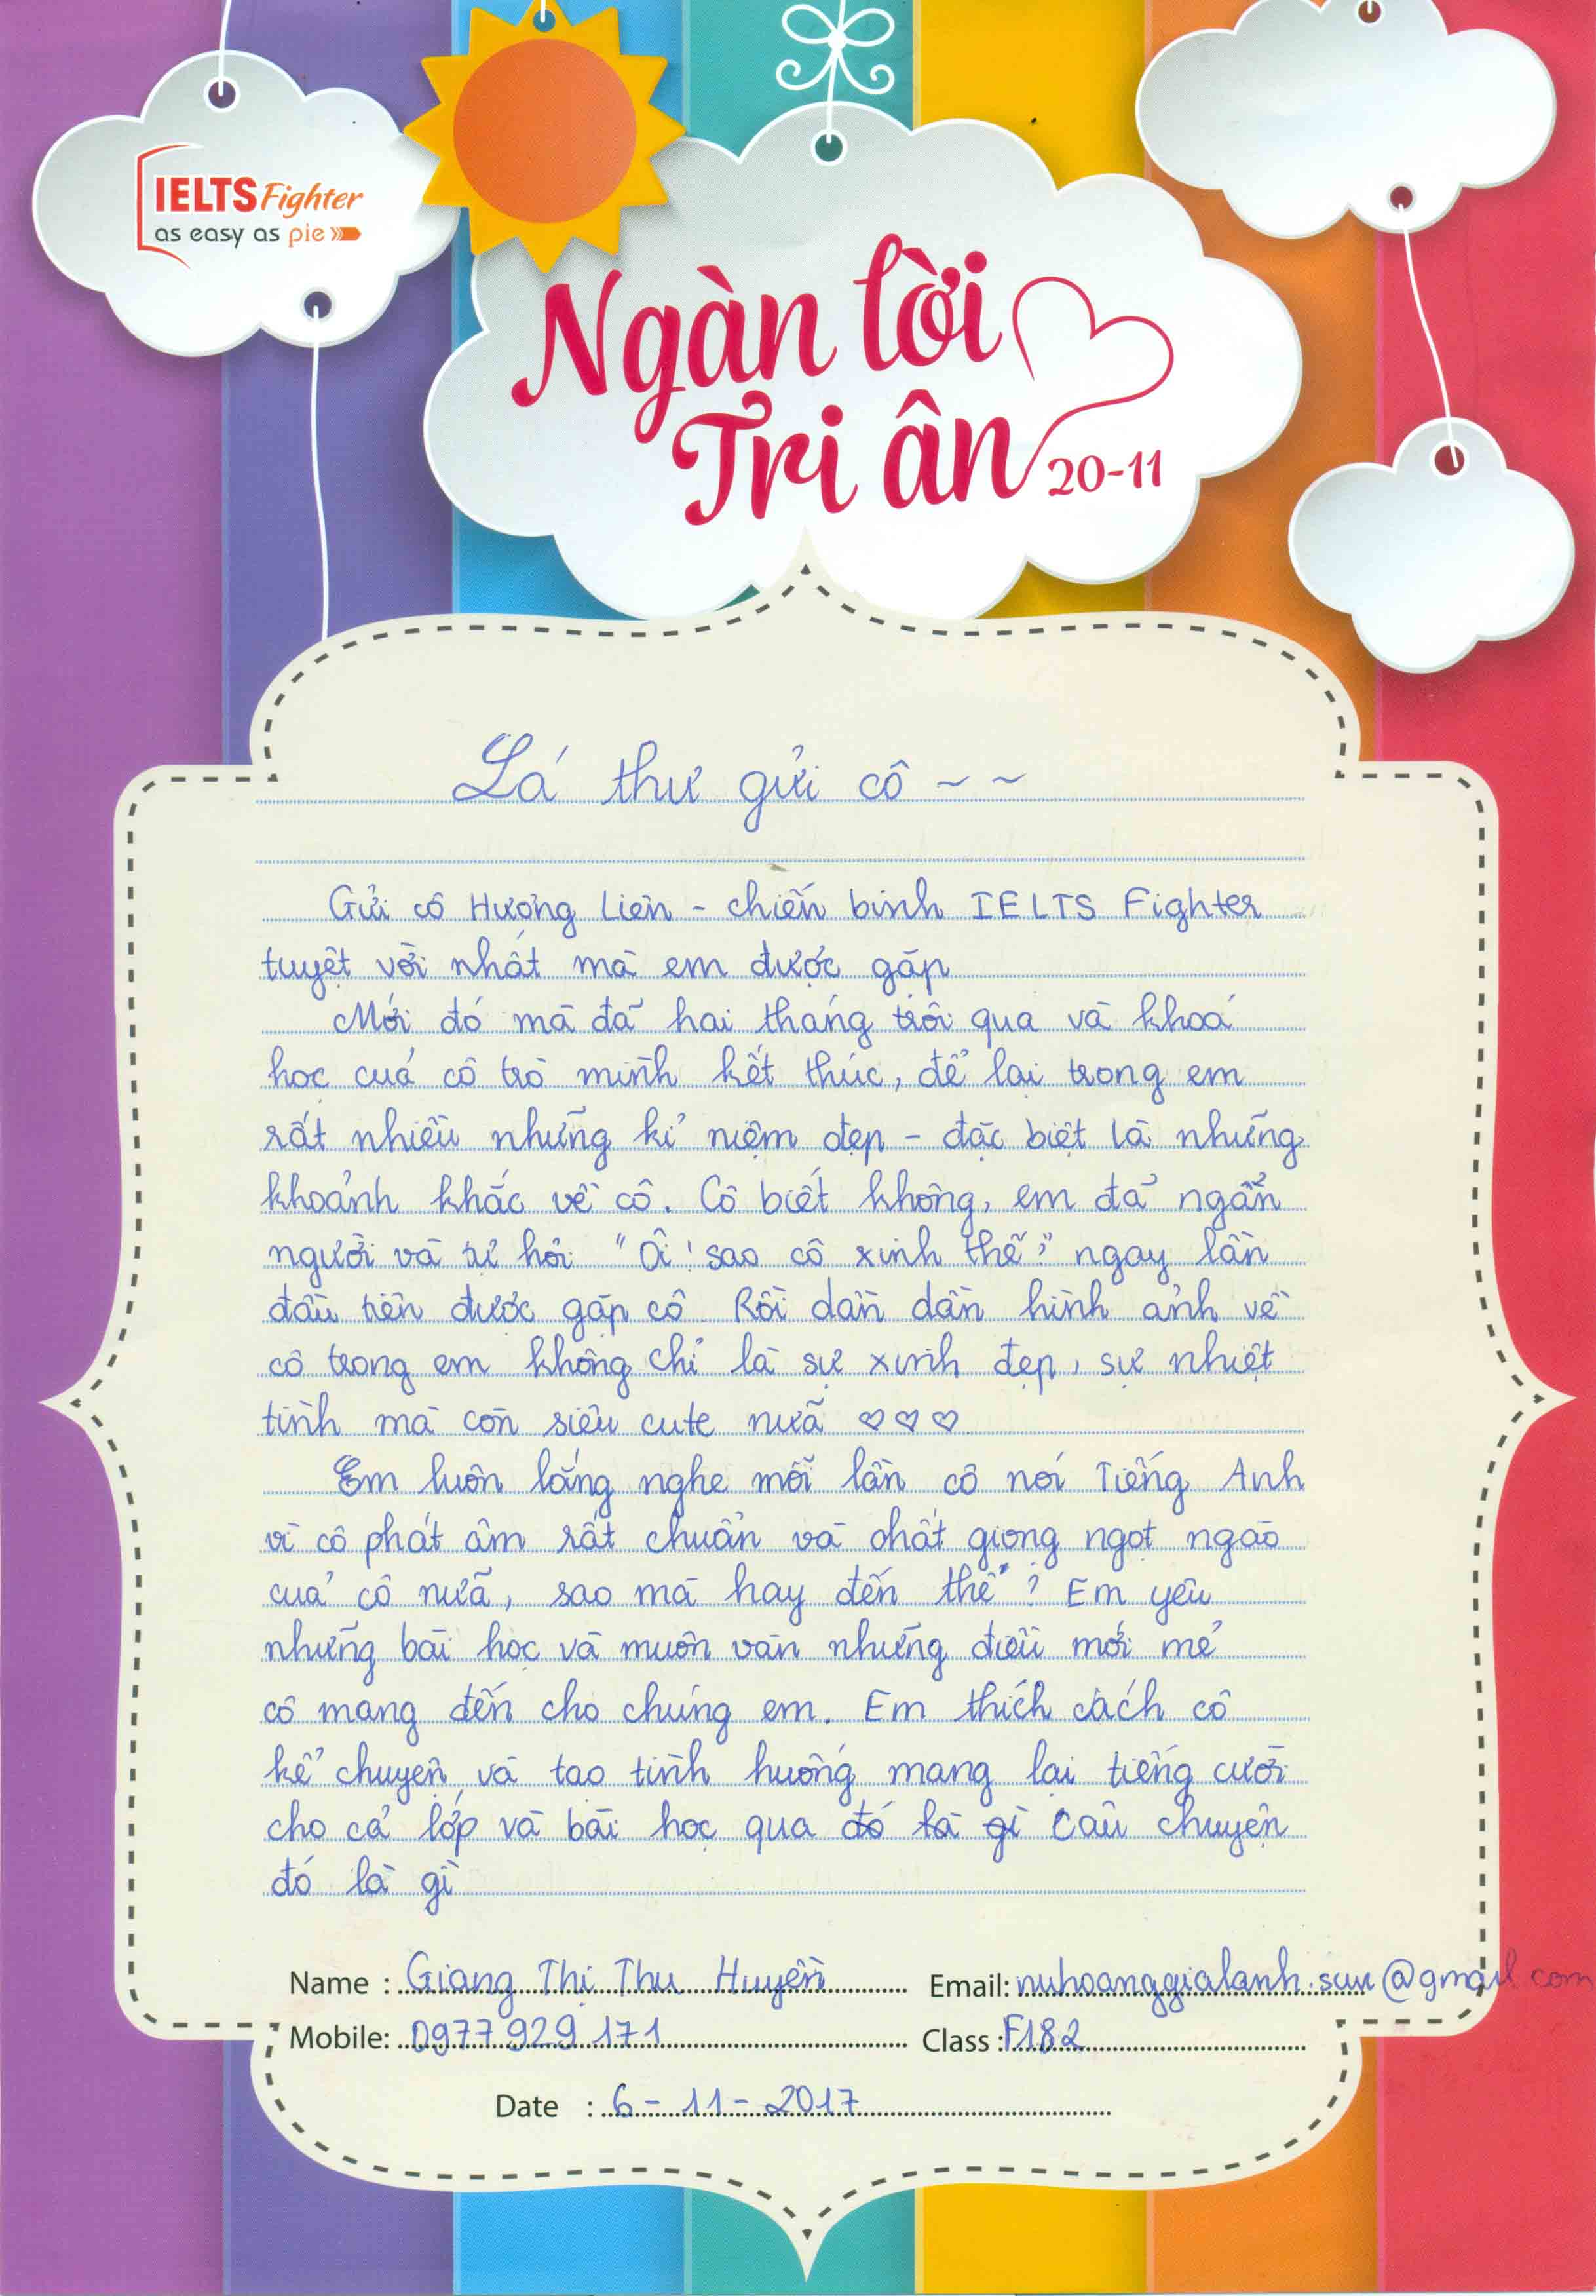 IELTS Fighter
as easy as pie
Ngàn lời
Tri ân
20-11
Lá thư gửi cô ~ ~
Gửi cô Hương Liên - chiến binh IELTS Fighter
tuyệt vời nhất mà em được gặp
Mới đó mà đã hai tháng trôi qua và khoá
học cuả cô trò mình kết thúc, để lại trong em
rất nhiều những kỉ niệm đẹp - đặc biệt là những
khoảnh khắc về cô. Cô biết không, em đã ngẩn
người và tự hỏi "Ôi! sao cô xinh thế?" ngay lần
đầu tiên được gặp cô. Rồi dần dần hình ảnh về
cô trong em không chỉ là sự xinh đẹp, sự nhiệt
tình mà còn siêu cute nữa ♡♡♡
Em luôn lắng nghe mỗi lần cô nói Tiếng Anh
vì cô phát âm rất chuẩn và chất giọng ngọt ngào
của cô nữa, sao mà hay đến thế? Em yêu
những bài học và muôn vàn những điều mới mẻ
cô mang đến cho chúng em. Em thích cách cô
kể chuyện và tạo tình huống mang lại tiếng cười
cho cả lớp và bài học qua đó là gì câu chuyện
đó là gì
Name : Giang Thị Thu Huyền Email: nuhoanggialanh.sun@gmail.com
Mobile: 0977 929 171 Class : F182
Date : 6 - 11 - 2017